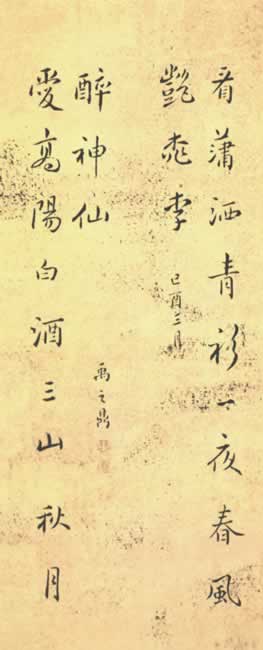 看瀟洒青衫一夜春風
豔桃李
己酉三月
愛高陽白酒三山秋月
醉神仙
禹之鼎